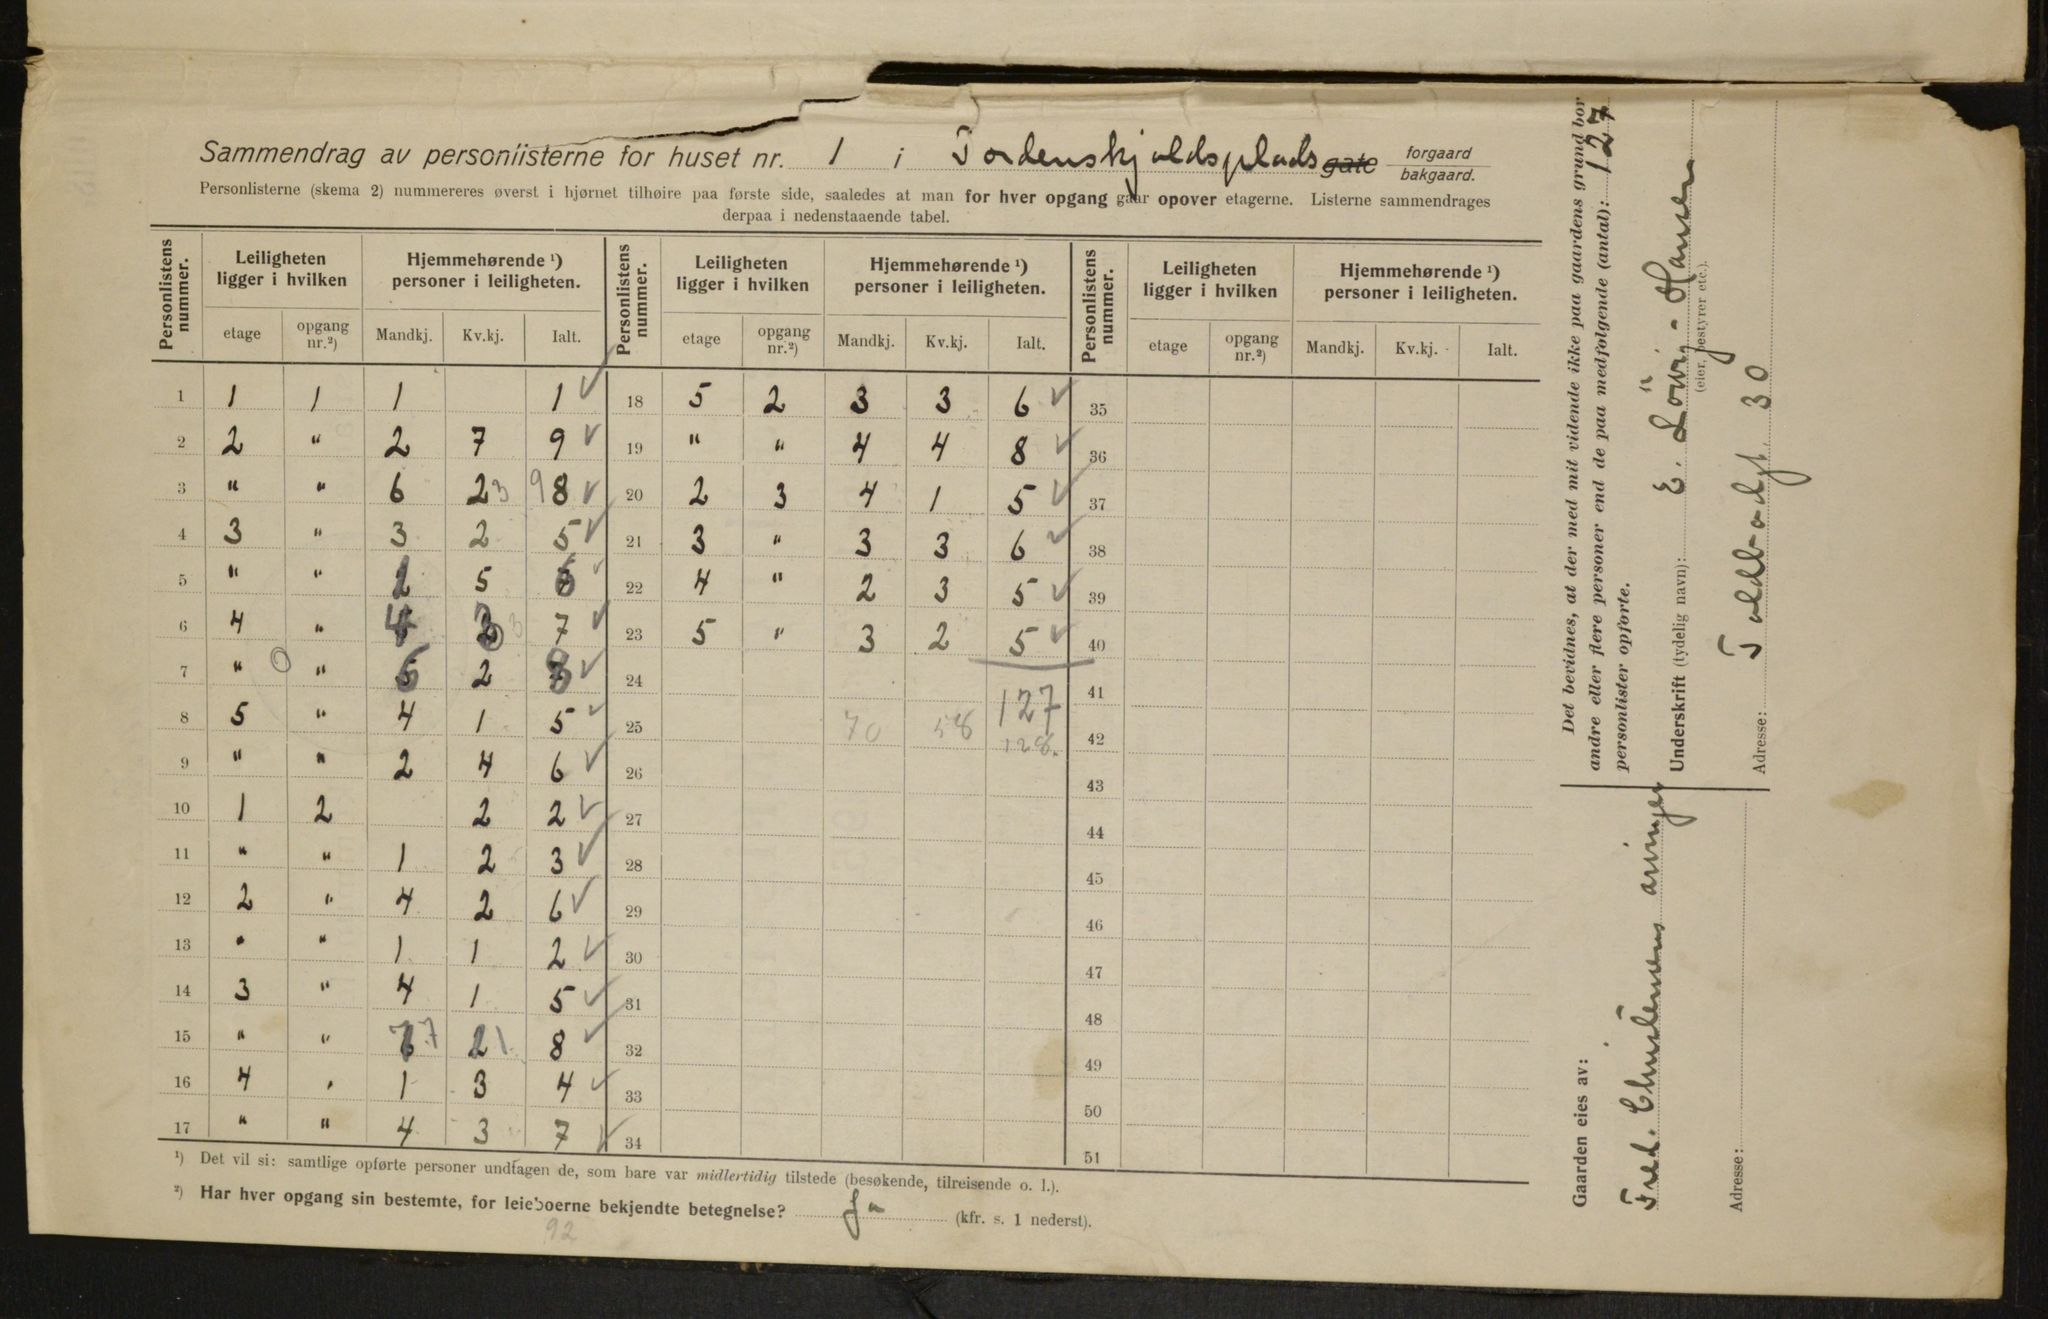 Sammendrag av personlisterne for huset nr. 1 i Tordenskjoldsplads gate forgaard bakgaard.
Personlisterne (skema 2) nummereres øverst i hjørnet tilhøire paa første side, saaledes at man for hver opgang gaar opover etagerne. Listerne sammendrages
derpaa i nedenstaaende tabel.
Personlistens nummer. Leiligheten ligger i hvilken Hjemmehørende ¹) personer i leiligheten. Personlistens nummer. Leiligheten ligger i hvilken Hjemmehørende ¹) personer i leiligheten. Personlistens nummer. Leiligheten ligger i hvilken Hjemmehørende ¹) personer i leiligheten.
etage opgang nr.²) Mandkj. Kv.kj. Ialt. etage opgang nr.²) Mandkj. Kv.kj. Ialt. etage opgang nr.²) Mandkj. Kv.kj. Ialt.
1 1 1 1 1 ✓ 18 5 2 3 3 6 ✓ 35
2 2 " 2 7 9 ✓ 19 " " 4 4 8 ✓ 36
3 " " 6 2 3 9 8 ✓ 20 2 3 4 1 5 ✓ 37
4 3 " 3 2 5 ✓ 21 3 " 3 3 6 ✓ 38
5 " " 1 5 6 ✓ 22 4 " 2 3 5 ✓ 39
6 4 " 4 3 3 7 ✓ 23 5 " 3 2 5 ✓ 40
7 " 0 " 6 2 8 ✓ 24 41
8 5 " 4 1 5 ✓ 25 70 58 127 128. 42
9 " " 2 4 6 ✓ 26 43
10 1 2 2 2 ✓ 27 44
11 " " 1 2 3 ✓ 28 45
12 2 " 4 2 6 ✓ 29 46
13 " " 1 1 2 ✓ 30 47
14 3 " 4 1 5 ✓ 31 48
15 " " 7 7 1 8 ✓ 32 49
16 4 " 1 3 4 ✓ 33 50
17 " " 4 3 7 ✓ 34 51
¹) Det vil si: samtlige opførte personer undtagen de, som bare var midlertidig tilstede (besøkende, tilreisende o. l.).
²) Har hver opgang sin bestemte, for leieboerne bekjendte betegnelse? Ja (kfr. s. 1 nederst).
92
Det bevidnes, at der med mit vidende ikke paa gaardens grund bor
andre eller flere personer end de paa medfølgende (antal): 127
personlister opførte.
Underskrift (tydelig navn): E. Lövig-Hansen
(eier, bestyrer etc.).
Adresse: Toldbodgt. 30
Gaarden eies av:
Fred. Clausens arvinger
Adresse: